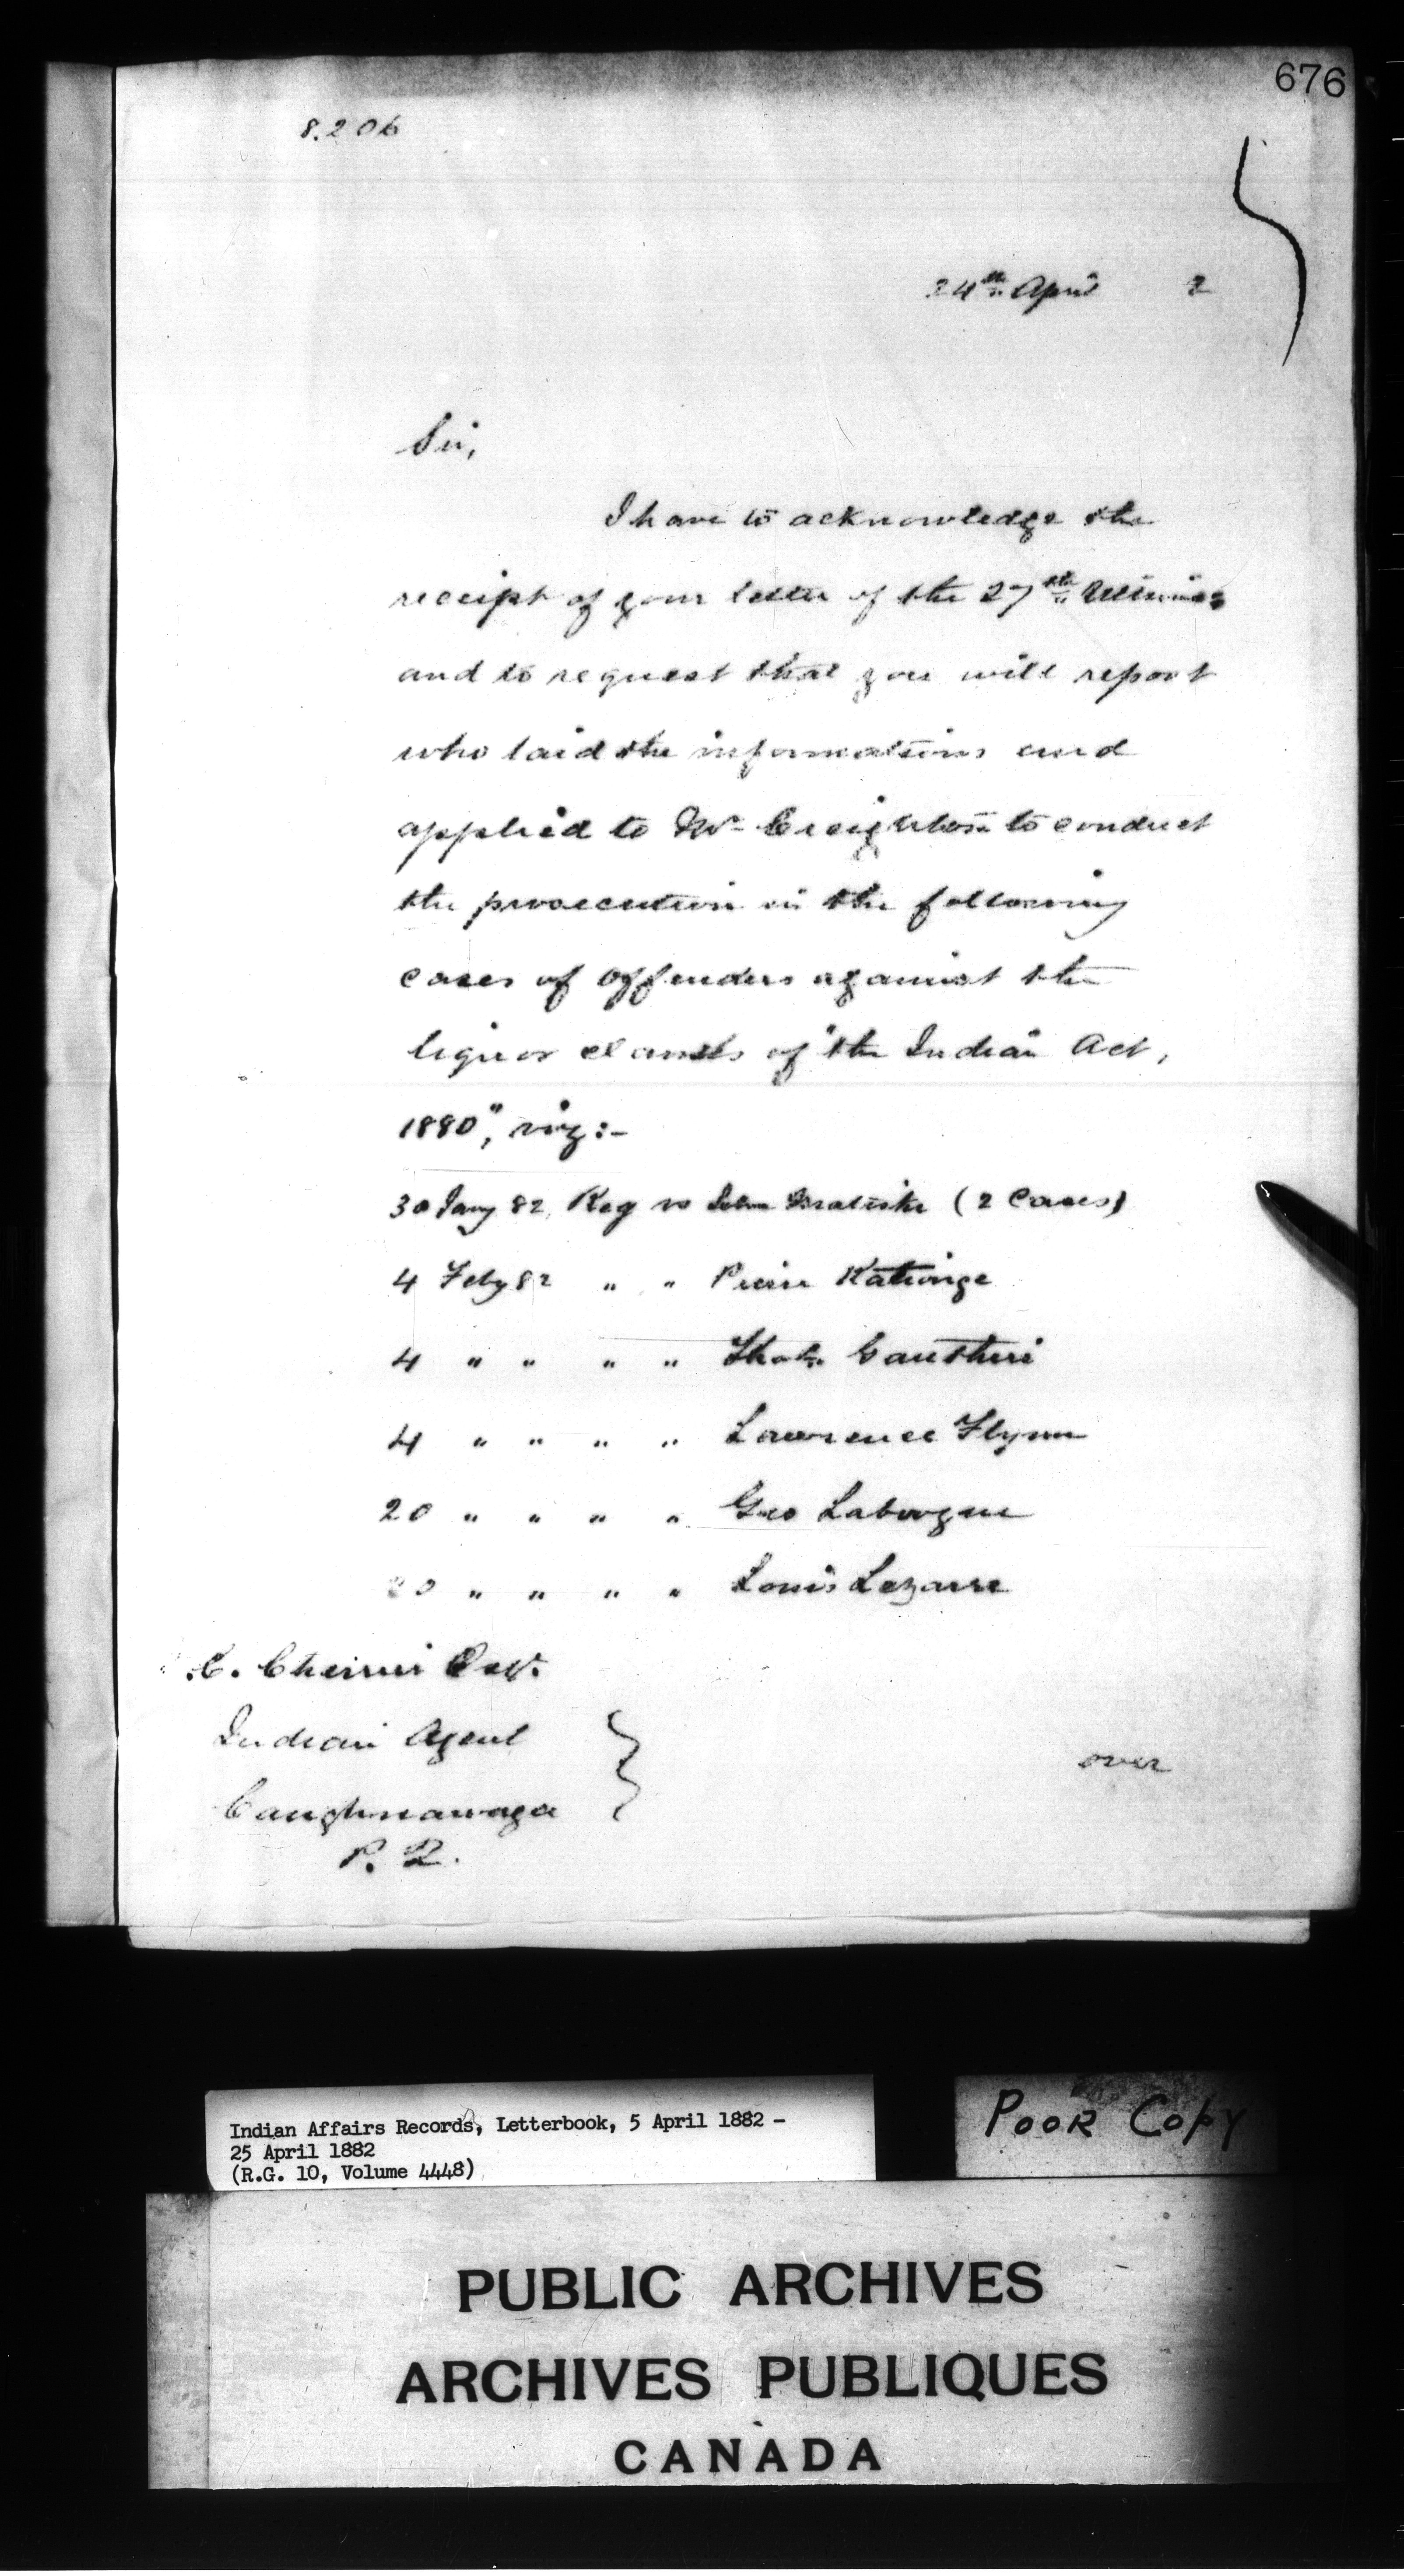 676
8.206
24th April 2
Sir,
I have to acknowledge the
receipt of your letter of the 27th Ultimo
and to request that you will report
who laid the informations and
applied to Mr Creighton to conduct
the prosecution in the following
cases of offenders against the
liquor clauses of "the Indian Act,
1880", viz:-
30 Jany 82, Reg vs John (2 Cases)
4 Feby 82 " " Pierre
4 " " " " Gauthier
4 " " " " Lawrence Flynn
20 " " " " Geo
20 " " " " Louis Lazarre
Esqr.
Indian Agent
Caughnawaga
P. Q.
over
Indian Affairs Records, Letterbook, 5 April 1882 -
25 April 1882
(R.G. 10, Volume 4448)
POOR COPY
PUBLIC ARCHIVES
ARCHIVES PUBLIQUES
CANADA